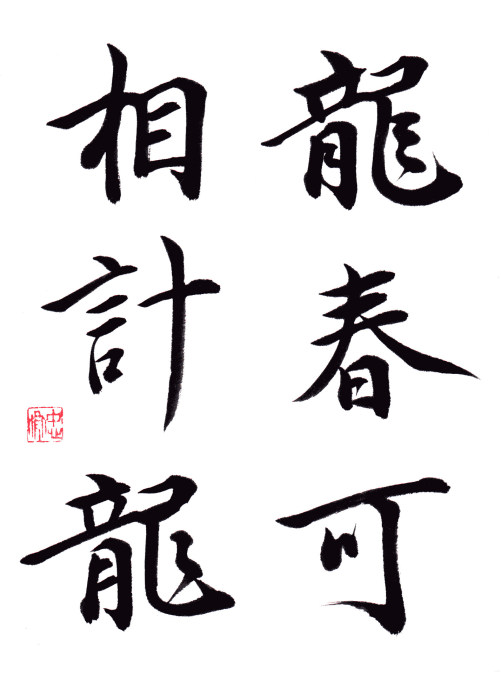 龍春可
相計龍